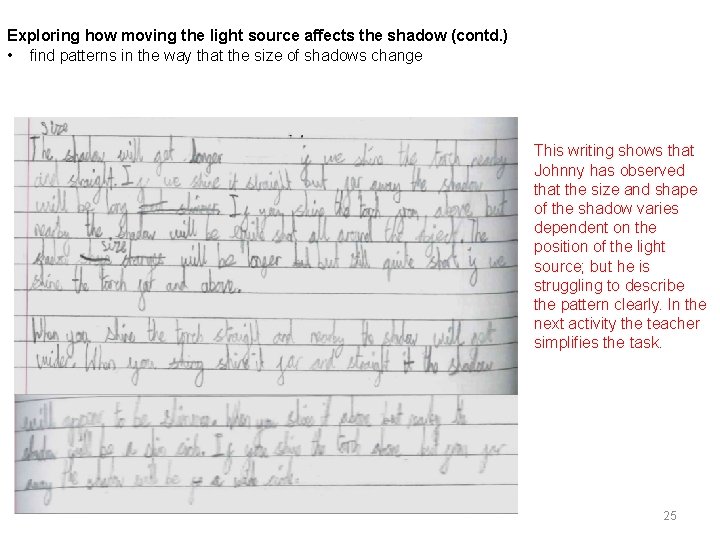 Exploring how moving the light source affects the shadow (contd. )
• find patterns in the way that the size of shadows change
size
The shadow will get longer if we shine the torch nearby
and straight. If we shine it straight but far away the shadow
will be long If you shine the torch from above but
nearby the shadow will be quite short all around the object. The
size
shadow will be longer but still quite short if we
shine the torch far and above.
When you shine the torch straight and nearby the shadow will get
wider. When you shine it far and straight it the shadow
will appear to be skinnier. When you shine it above but nearby the
shadow will be a If you shine the torch above but from far
away the shadow will be
This writing shows that
Johnny has observed
that the size and shape
of the shadow varies
dependent on the
position of the light
source; but he is
struggling to describe
the pattern clearly. In the
next activity the teacher
simplifies the task.
25